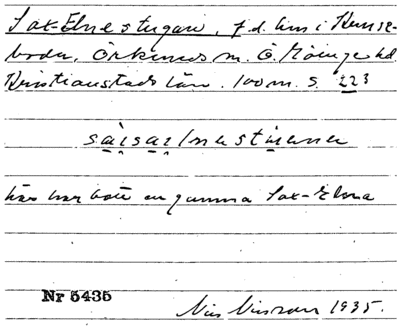 Sax-Elnestugan, f.d. hus i Kunse-
boda, Örkeneds sn. Ö. Göinge hd
Kristianstads län. 100 m. S. 223
här har bott en gamma Sax-Elna
Nr 5435
Nils Nilsson 1935.